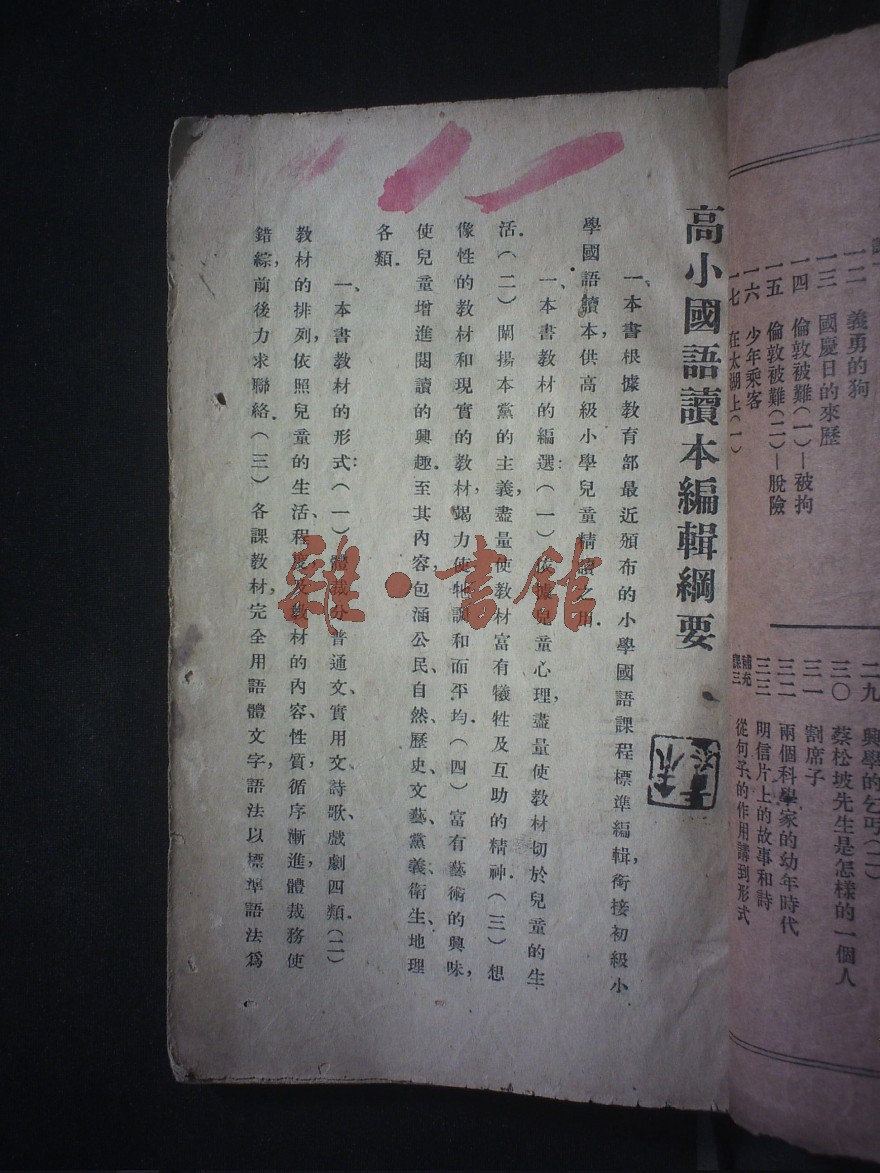 高小國語讀本編輯綱要
一、本書根據教育部最近頒布的小學國語課程標準編輯，銜接初級小
學國語讀本，供高級小學兒童精讀之用．
一、本書教材的編選：（一）依據兒童心理，盡量使教材切於兒童的生
活．（二）闡揚本黨的主義，盡量使教材富有犧牲及互助的精神．（三）想
像性的教材和現實的教材，竭力使牠調和而平均．（四）富有藝術的興味，
使兒童增進閱讀的興趣．至其內容，包涵公民、自然、歷史、文藝、黨義、衛生、地理
各類．
一、本書教材的形式：（一）體裁分普通文、實用文、詩歌、戲劇四類．（二）
教材的排列，依照兒童的生活、程度，及教材的內容、性質，循序漸進，體裁務使
錯綜，前後力求聯絡．（三）各課教材，完全用語體文字，語法以標準語法爲
雜·書館
一二　義勇的狗
一三　國慶日的來歷
一四　倫敦被難（一）—被拘
一五　倫敦被難（二）—脫險
一六　少年乘客
一七　在太湖上（一）
二九　興學的乞丐（二）
三〇　蔡松坡先生是怎樣的一個人
三一　割席子
三二　兩個科學家的幼年時代
三三　明信片上的故事和詩
補充課三　從句子的作用講到形式